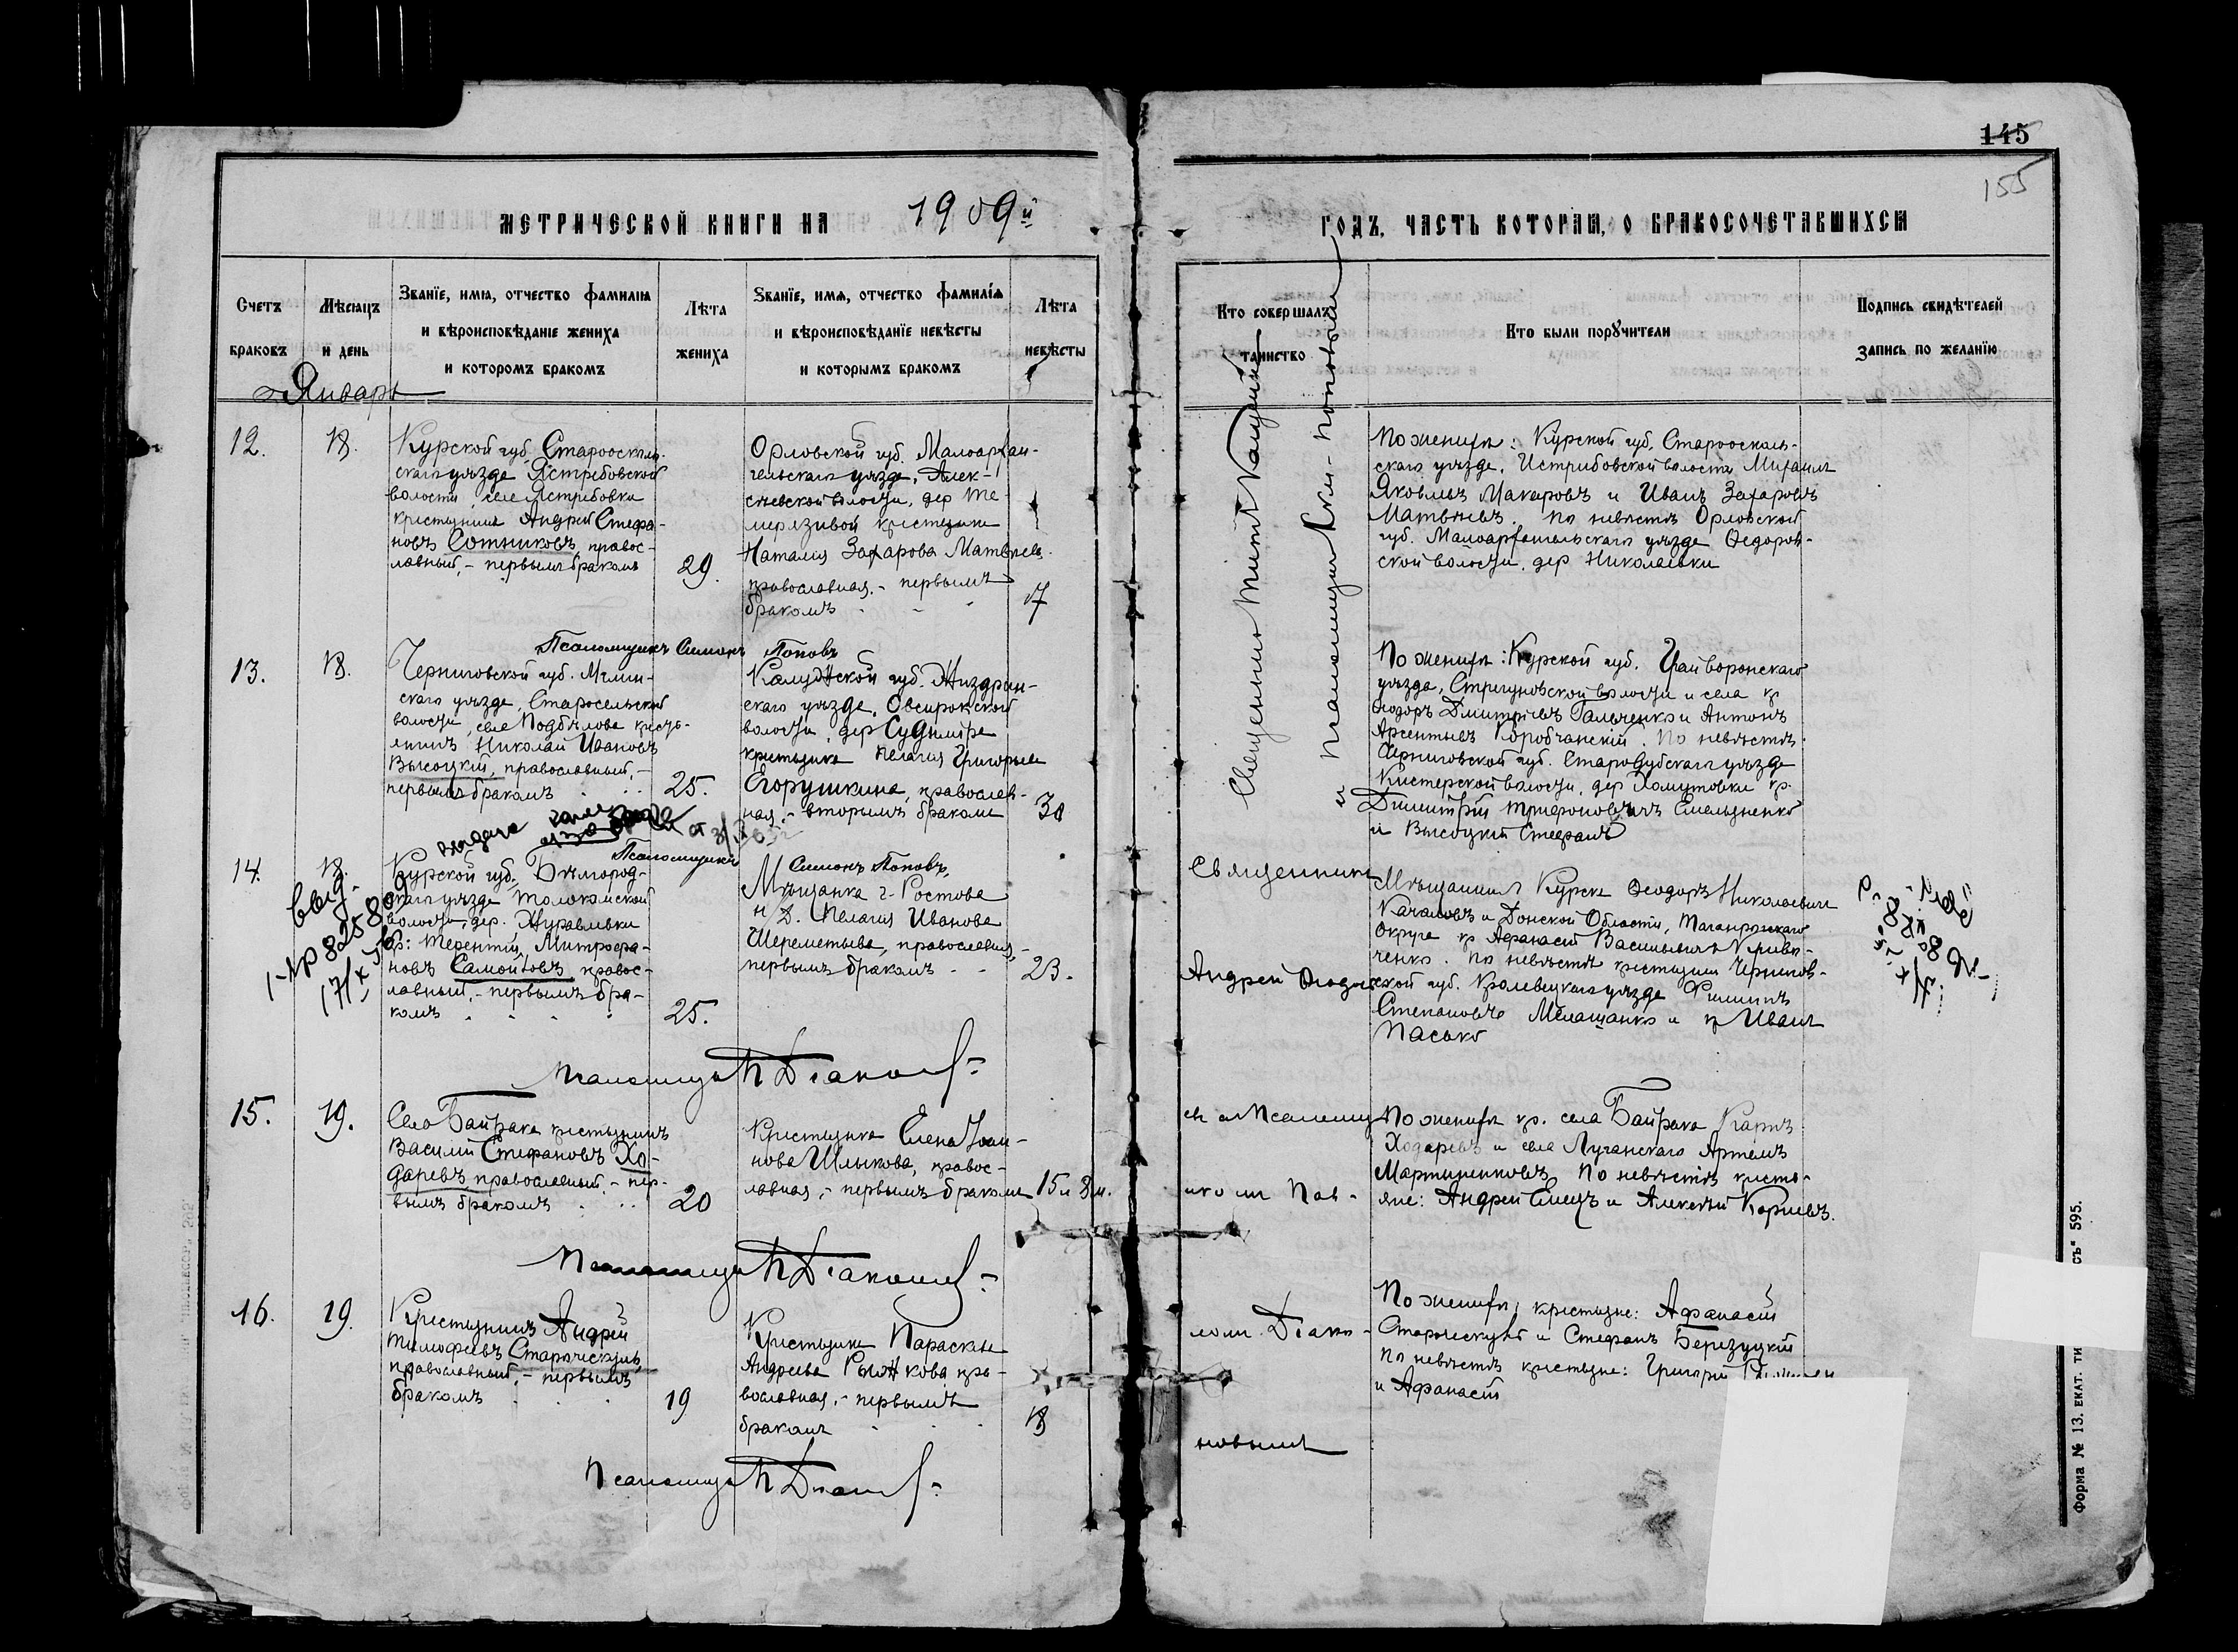 145
155
МЕТРИЧЕСКОЙ КНИГИ НА 1909й
ГОДЪ, ЧАСТЬ КОТОРАЯ, О БРАКОСОЧЕТАВШИХСЯ
Счетъ браковъ
Мѣсяцъ и день
Званїе, имя, отчество фамилія
и вѣроисповѣданіе жениха
и которомъ бракомъ
Лѣта жениха
Званїе, имя, отчество фамилїя
и вѣроисповѣданїе невѣсты
и которымъ бракомъ
Лѣта невѣсты
Кто совершалъ таинство
Кто были поручители
Подпись свидѣтелей
Запись по желанію
Январь
12.
18.
Курской губ. Старооскль-
скаго уѣзда Ястребовской
волости, села Ястребовки
крестьянинъ Андрей Стефа-
новъ Сотниковъ, правос-
лавный, - первымъ бракомъ
29.
Орловской губ. Малоархан-
гельскаго уѣзда, Алек-
сѣевской волости, дер. Те-
мерязивой крестьянка
Наталия Захарова Матвѣева
православная, - первымъ
бракомъ
17
По женихѣ: Курской губ. Старооколь-
скаго уѣзда, Истрибовской волости Михаилъ
Яковлевъ Макаровъ и Иванъ Захаровъ
Матвѣевъ. По невѣстѣ Орловской
губ. Малоархангельскаго уѣзда Ѳедоров-
ской волости, дер. Николаевки
Псаломщикъ Симонъ Поповъ
13.
18.
Черниговской губ. Мглин-
скаго уѣзда, Старосельской
волости, села Подбѣлова кресть-
янинъ Николай Ивановъ
Высоцкій, православный, -
первымъ бракомъ
25.
Калужской губ. Жиздрин-
скаго уѣзда, Овсорокской
волости, дер. Судимира
крестьянка Пелагия Григорьева
Егорушкина, православ-
ная, - вторымъ бракомъ
30
По женихѣ: Курской губ. Грайворонскаго
уѣзда, Стригуновской волости и села кр.
Ѳеодоръ Дмитріевъ Гальченко и Антонъ
Арсентьевъ Коробчанскій. По невѣстѣ:
Черниговской губ. Стародубскаго уѣзда
Кистерской волости, дер. Хомутовки кр.
Димитрій Трифоновичъ Емельяненко
и Высоцкій Стефанъ
Священникъ Титъ
и псаломщикъ Поповым
Псаломщикъ Симонъ Поповъ
14.
18.
Курской губ. Бѣлгород-
скаго уѣзда Толоконской
волости, дер. Журавлевки
кр: Терентій Митрофа-
новъ Самойловъ, правос-
лавный, - первымъ бра-
комъ
25.
Мѣщанка г. Ростова
н/Д. Пелагия Иванова
Шереметьева, православная,
первымъ бракомъ
23.
Мѣщанинъ Курска Ѳеодоръ Николаевичъ
Качаловъ и Донской Области, Таганрогскаго
Округа кр. Афанасій Васильевичъ
ченко. По невѣстѣ крестьянинъ Чернигов-
ской губ. Кролевецкаго уѣзда Филиппъ
Степановичъ и кр Иванъ
Пасько
Священникъ
Андрей
Псаломщикъ П Діаконовъ
15.
19.
Села Байрака крестьянинъ
Василій Стефановъ Хо-
даревъ, православный, - пер-
вымъ бракомъ
20
Крестьянка Елена Іоан-
нова Шлыкова, правос-
лавная, - первымъ бракомъ
15 и 8м.
съ псаломщи
По женихѣ кр. села Байрака Карпъ
Ходаревъ и села Луганскаго Артемъ
Мартыненковъ. По невѣстѣ кресть-
яне: Андрей Емецъ и Алексѣй Корневъ.
комъ Пав-
Псаломщикъ П Діаконовъ
16.
19.
Крестьянинъ Андрей
Тимофеевъ Старческулъ,
православный, - первымъ
бракомъ
19
Крестьянка Параскева
Андреева Рыжкова пра-
вославная, - первымъ
бракомъ
18
ломъ Діако-
новымъ
По женихѣ, крестьяне: Афанасій
Старческулъ и Стефанъ Березуцкій
По невѣстѣ крестьяне: Григорій
и Афанасій
Псаломщикъ П Діаконовъ
Форма № 13. ЕКАТ. ТИ
СЪ" 595.